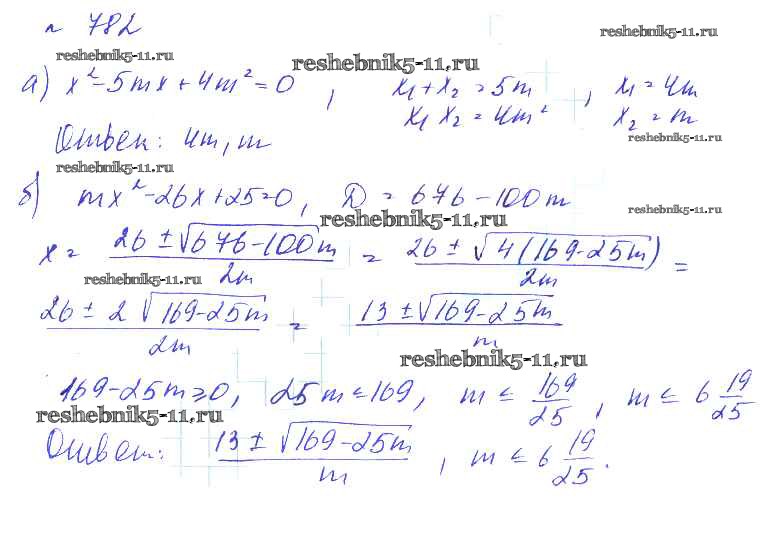 № 782
reshebnik5-11.ru
reshebnik5-11.ru
reshebnik5-11.ru
а) x²-5mx+4m²=0, x₁+x₂=5m, x₁=4m
x₁ x₂=4m² x₂=m
reshebnik5-11.ru
Ответ: 4m, m
reshebnik5-11.ru
б) mx²-26x+25=0, D=676-100m
reshebnik5-11.ru
reshebnik5-11.ru
x = (26 ± √(676-100m))/(2m) = (26 ± √(4(169-25m)))/(2m) =
reshebnik5-11.ru
(26 ± 2√(169-25m))/(2m) = (13 ± √(169-25m))/m
reshebnik5-11.ru
169-25m≥0, 25m≤169, m ≤ 169/25, m ≤ 6 19/25
reshebnik5-11.ru
Ответ: (13 ± √(169-25m))/m, m ≤ 6 19/25.